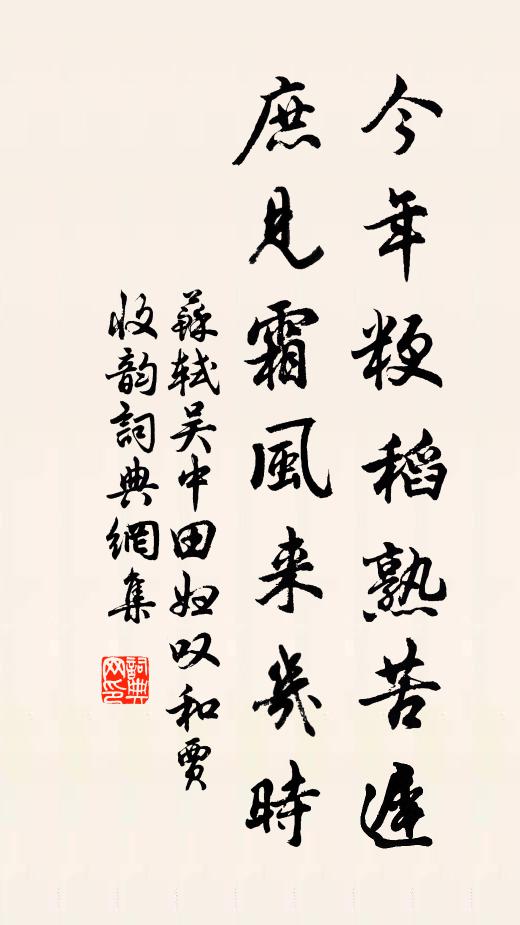 今年粳稻熟苦遲
庶見霜風来幾時
蘇軾吴中田妇叹和賈
收韵詞典網集
詞典网印